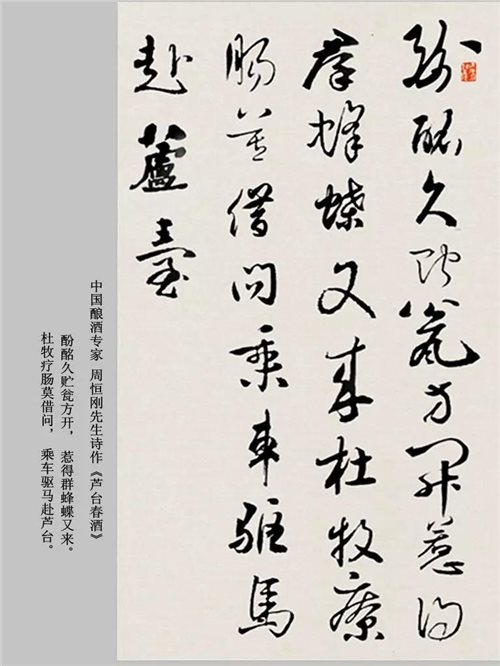 酚酩久貯瓮方開惹得
羣蜂蝶又来杜牧療
腸莫借问乘車驅馬
赴蘆臺
中国酿酒专家 周恒刚先生诗作《芦台春酒》
酚酩久贮瓮方开， 惹得群蜂蝶又来。
杜牧疗肠莫借问， 乘车驱马赴芦台。